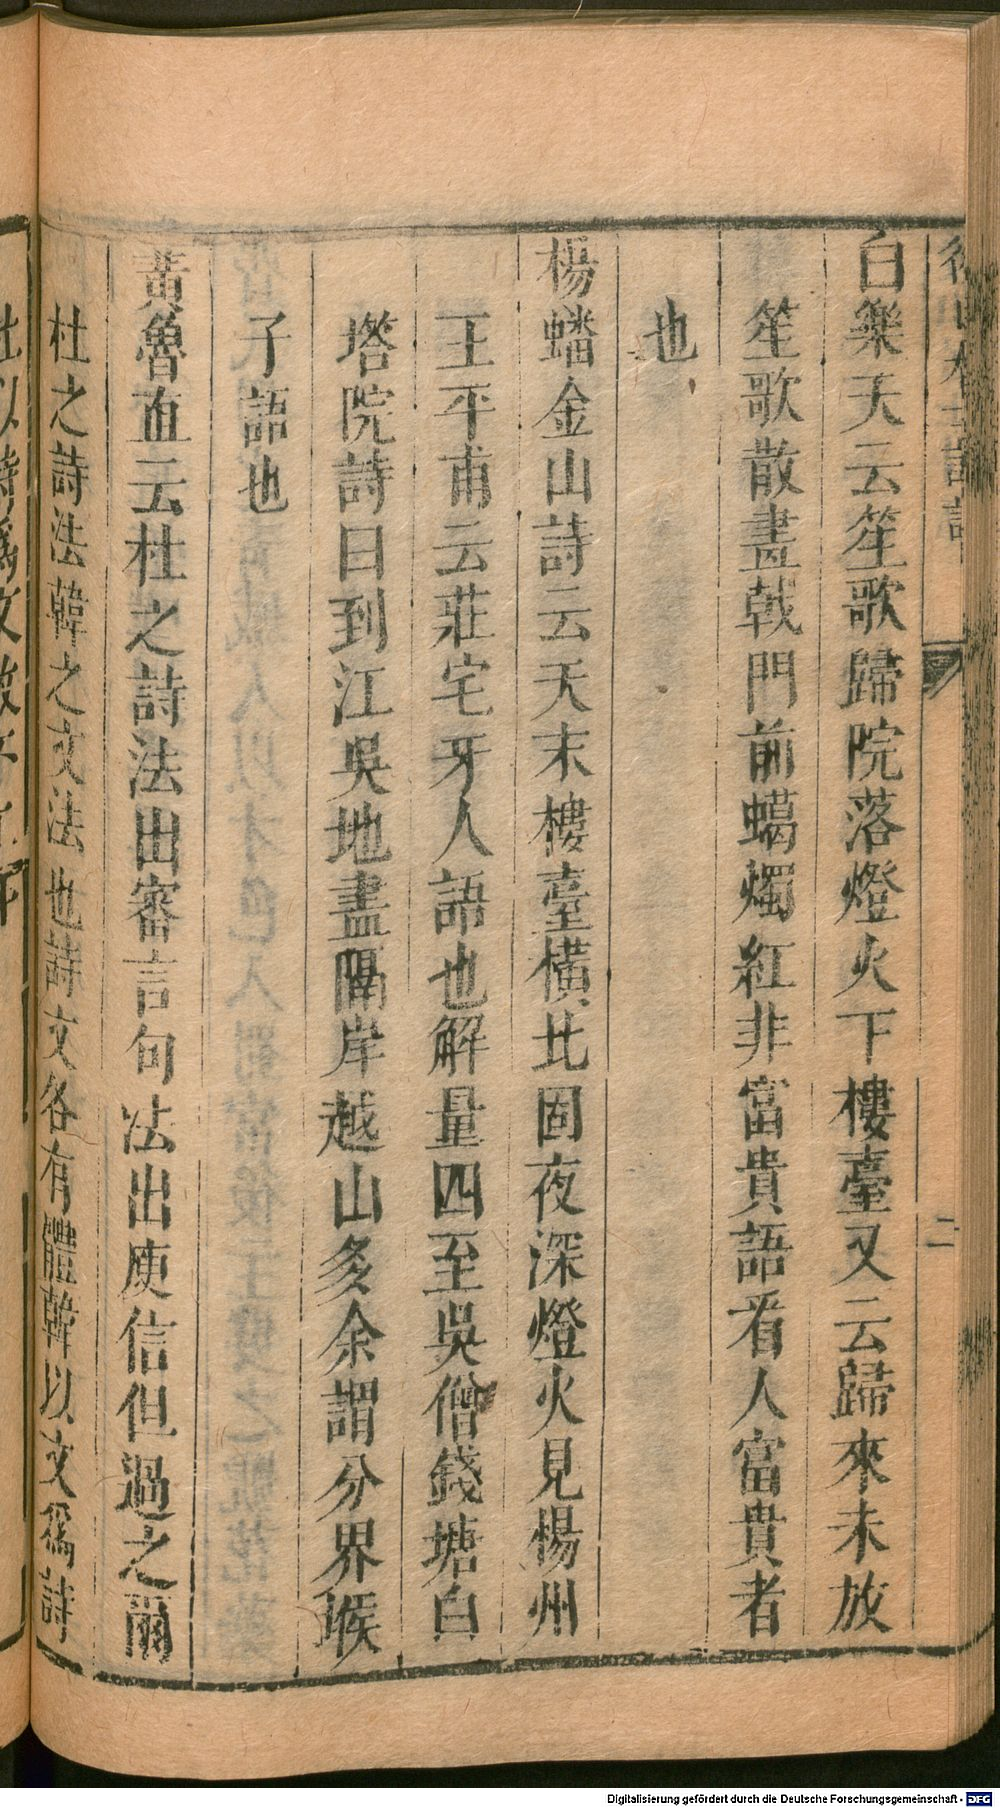 白樂天云笙歌歸院落燈火下樓臺又云歸來未放
笙歌散畫戟門前蠟燭紅非富貴語看人富貴者
也
楊蟠金山詩云天末樓臺橫北固夜深燈火見楊州
王平甫云莊宅牙人語也解量四至吳僧錢塘白
塔院詩曰到江吳地盡隔岸越山多余謂分界堠
子語也
黃魯直云杜之詩法出審言句法出庾信但過之爾
杜之詩法韓之文法也詩文各有體韓以文爲詩
杜以詩爲文故不工
二
Digitalisierung gefördert durch die Deutsche Forschungsgemeinschaft - DFG